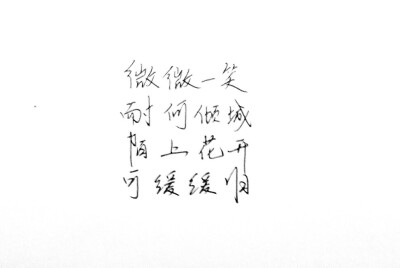 微微一笑
耐何倾城
陌上花开
可缓缓归